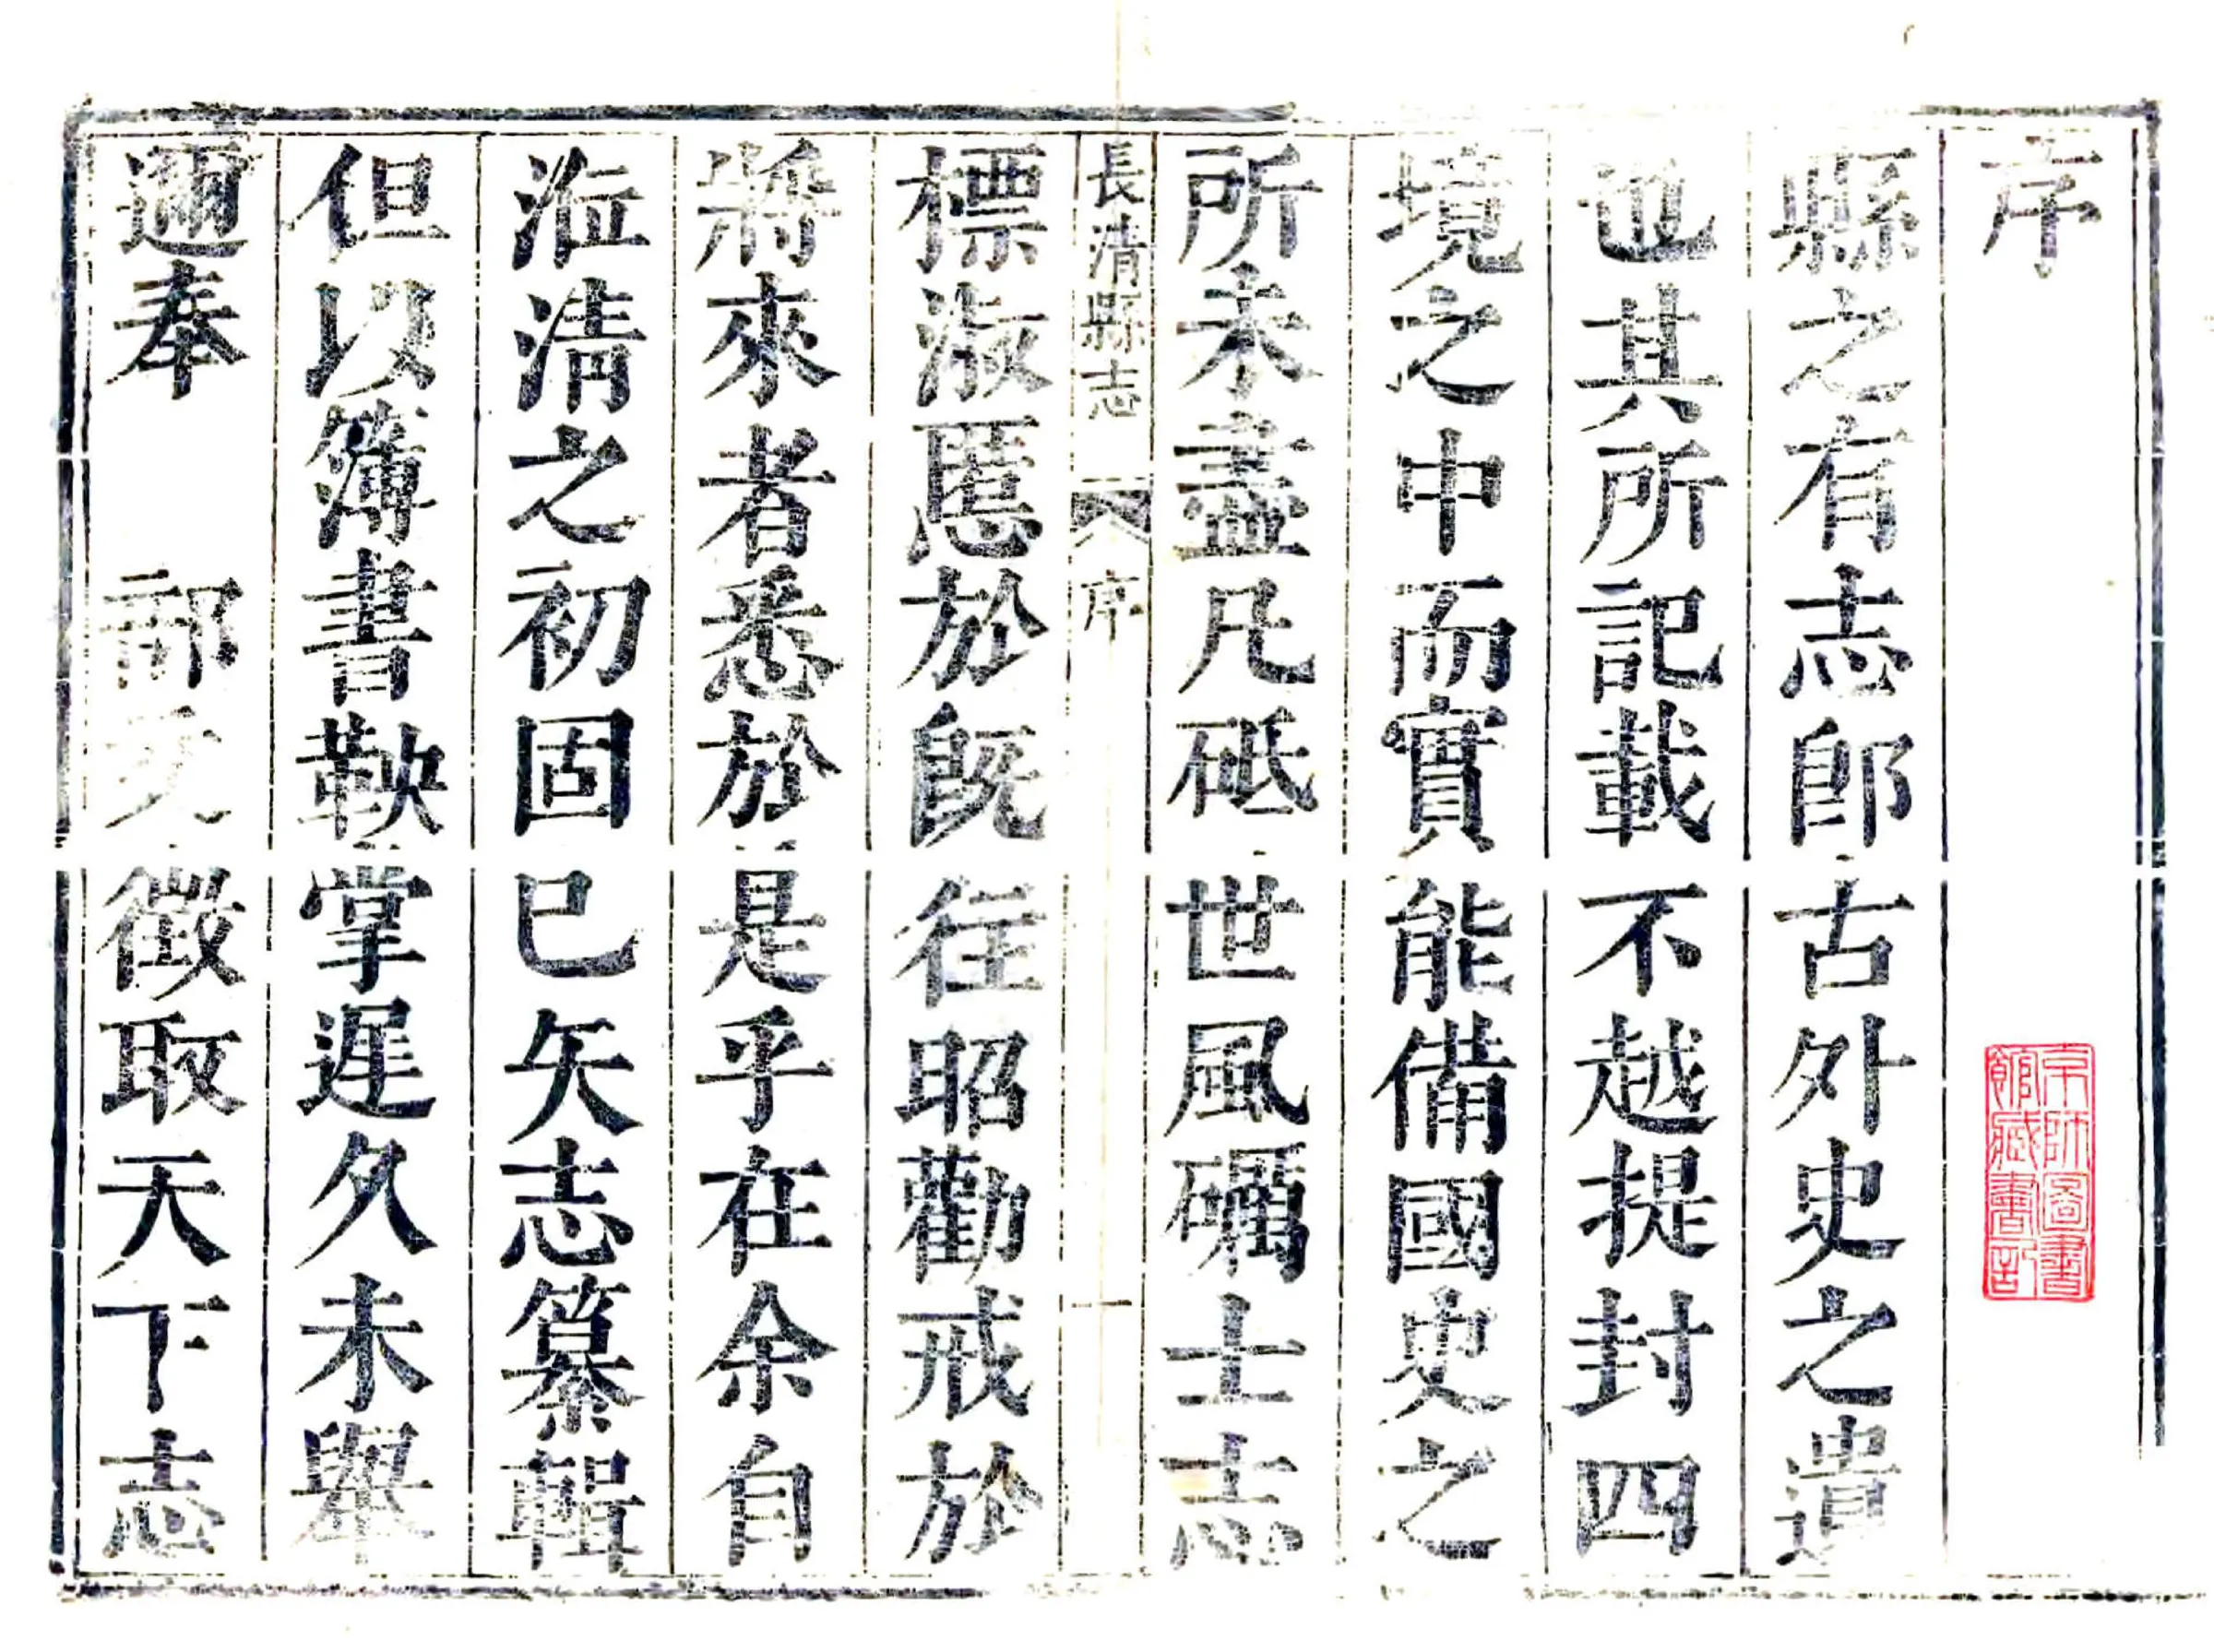 序
縣之有志郎古外史之遺
也其所記載不越提封四
境之中而實能備國史之
所未盡凡砥世風礪士志
長清縣志 序 一
標淑慝於旣往昭勸戒於
將來者悉於是乎在余自
涖清之初固已矢志纂輯
但以簿書鞅掌遲久未舉
邇奉 部 徵取天下志
京師圖書
館藏書記